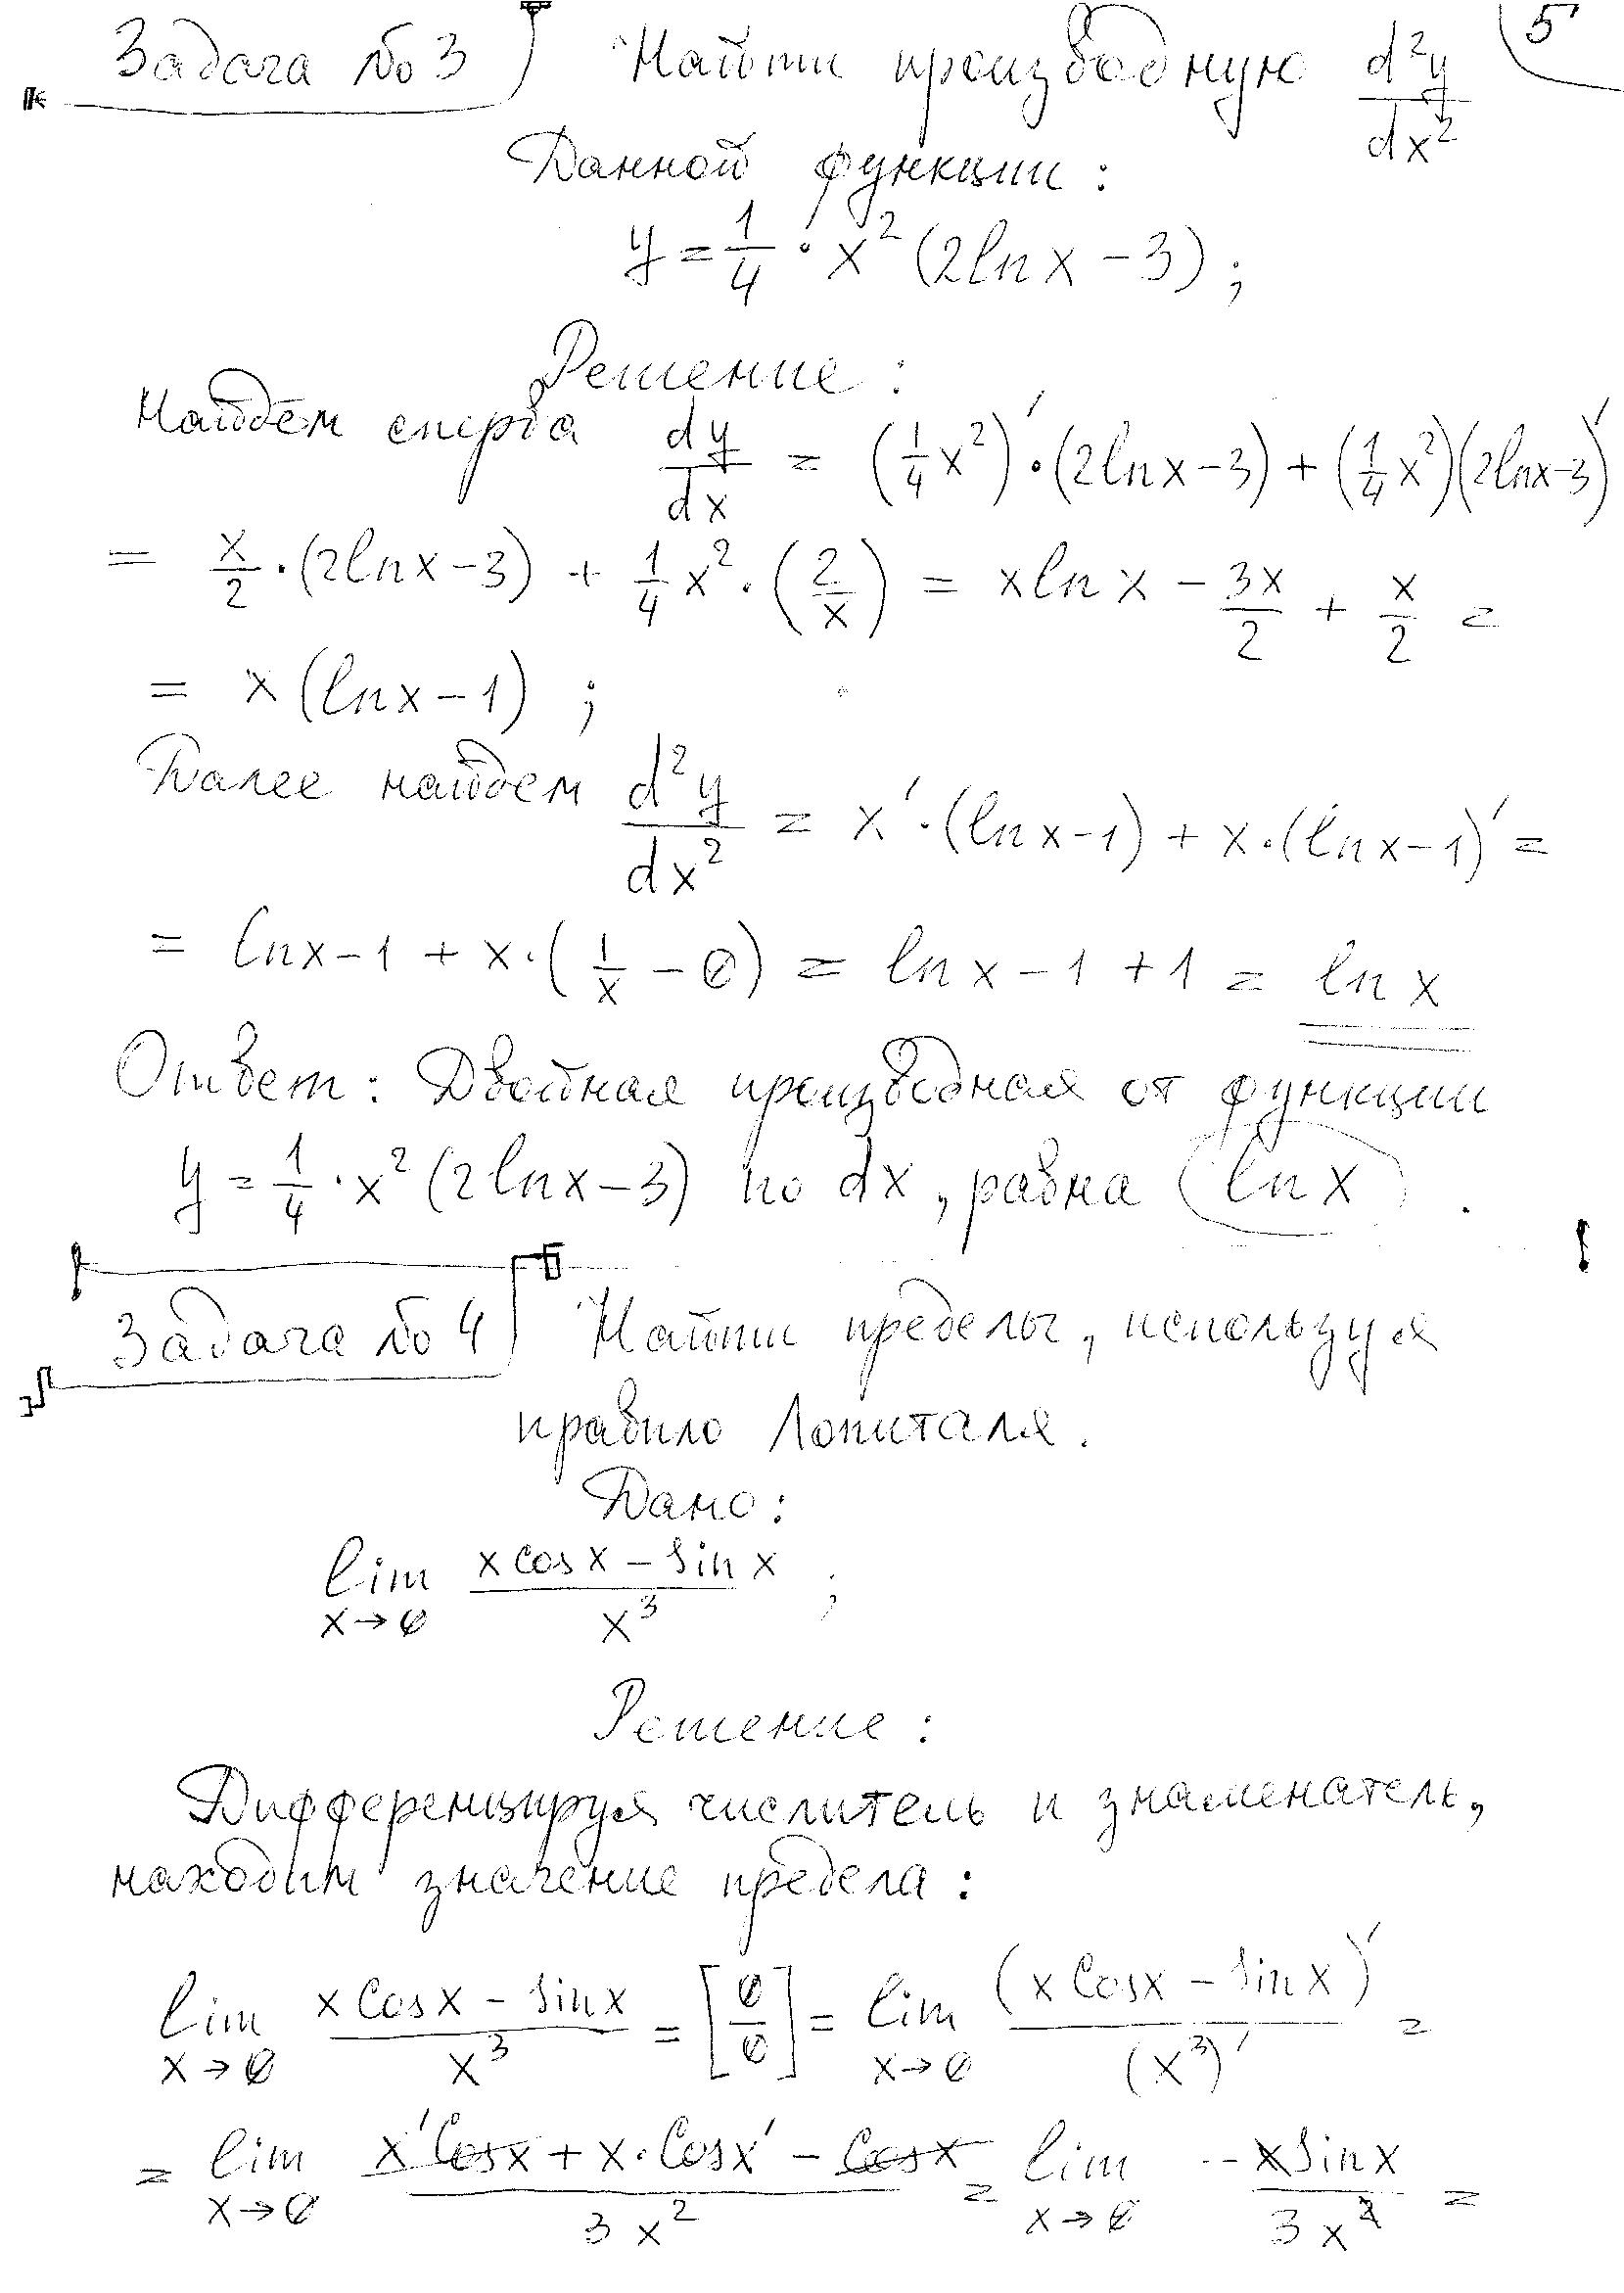 Задача № 3 Найти производную d²y/dx² 5
Данной функции:
y = 1/4 · x² (2lnx − 3);
Решение:
Найдём сперва dy/dx = (1/4 x²)′ · (2lnx − 3) + (1/4 x²)(2lnx − 3)′
= x/2 · (2lnx − 3) + 1/4 x² · (2/x) = xlnx − 3x/2 + x/2 =
= x(lnx − 1);
Далее найдем d²y/dx² = x′ · (lnx − 1) + x · (lnx − 1)′ =
= lnx − 1 + x · (1/x − 0) = lnx − 1 + 1 = lnx
Ответ: Двойная производная от функции
y = 1/4 · x² (2lnx − 3) по dx, равна lnx.
Задача № 4 Найти пределы, используя
правило Лопиталя.
Дано:
lim x→0 (xcosx − sinx)/x³;
Решение:
Дифференцируя числитель и знаменатель,
находим значение предела:
lim x→0 (xcosx − sinx)/x³ = [0/0] = lim x→0 (xcosx − sinx)′/(x³)′ =
= lim x→0 (x′cosx + x·cosx′ − cosx)/3x² = lim x→0 −xsinx/3x² =